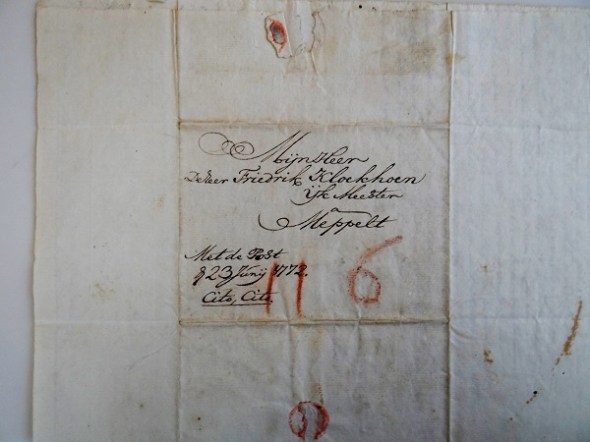 Mijn Heer
De Heer Friedrik Kloekhoen
ijk Meester
a
Meppelt
Met de Post
23 Junij 1772.
Cito, Cito.
11 6